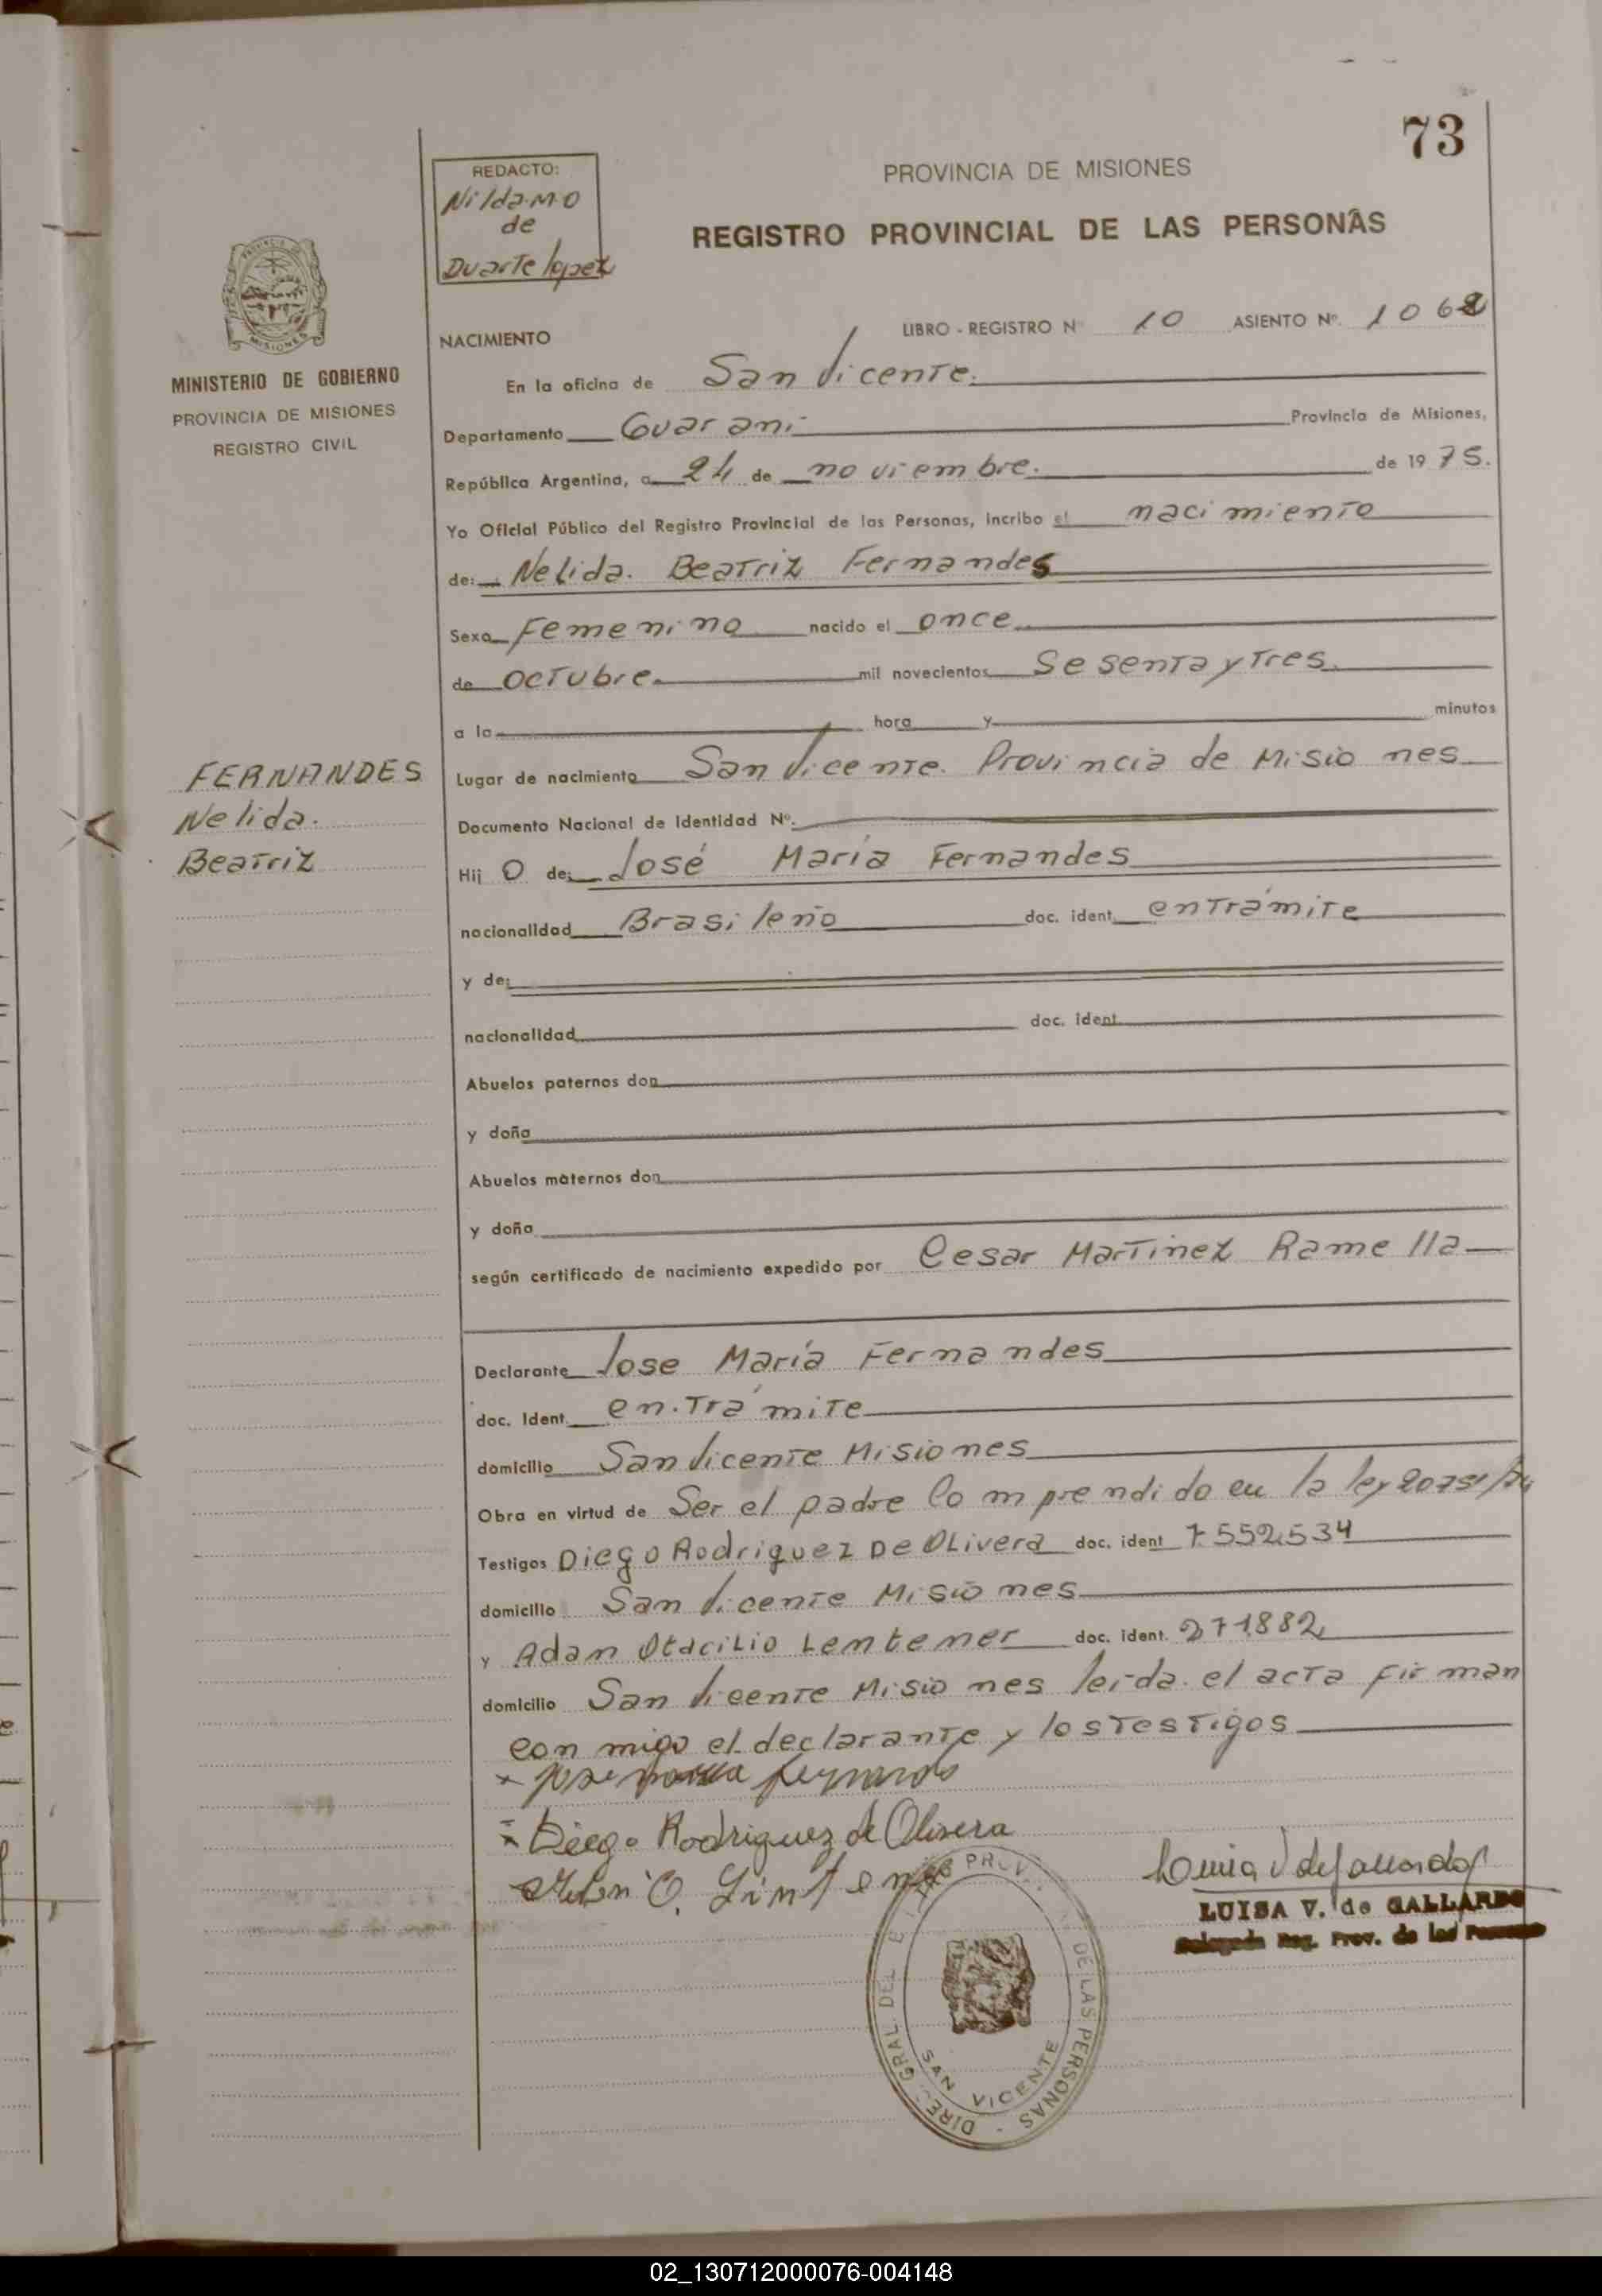 73
REDACTO:
Nilda M O
de
Duarte lopez
PROVINCIA DE MISIONES
REGISTRO PROVINCIAL DE LAS PERSONAS
MINISTERIO DE GOBIERNO
PROVINCIA DE MISIONES
REGISTRO CIVIL
NACIMIENTO
LIBRO - REGISTRO Nº 10 ASIENTO Nº.
En la oficina de San Vicente.
Departamento Guarani Provincia de Misiones,
República Argentina, a 24 de noviembre. de 1975.
Yo Oficial Público del Registro Provincial de las Personas, incribo el nacimiento
de: Nelida. Beatriz Fernandes
Sexo Femenino nacido el once
de octubre. mil novecientos Sesenta y Tres.
a la hora y minutos
Lugar de nacimiento San Vicente. Provincia de Misiones
FERNANDES
Nelida.
Beatriz
Documento Nacional de Identidad Nº.
Hij O de: José María Fernandes
nacionalidad Brasileño doc. ident. en Trámite
y de:
nacionalidad doc. ident.
Abuelos paternos don
y doña
Abuelos maternos don
y doña
según certificado de nacimiento expedido por Cesar Martinez Ramella
Declarante Jose María Fernandes
doc. Ident. en. Trámite
domicilio San Vicente Misiones
Obra en virtud de Ser el padre Comprendido en la ley
Testigos Diego Rodriguez De Olivera doc. ident 7.552.534
domicilio San Vicente Misiones
y Adan Otacilio Lentener doc. ident. 271.882
domicilio San Vicente Misiones leida. el acta firman
con migo el declarante y los Testigos
x Jose Maria Fernandes
x Diego Rodriguez de Olivera
LUISA V. de GALLARDO
Delegada Reg. Prov. de las Personas
DIREC. GRAL. DEL
PROV.
DE LAS PERSONAS
SAN VICENTE
02_130712000076-004148